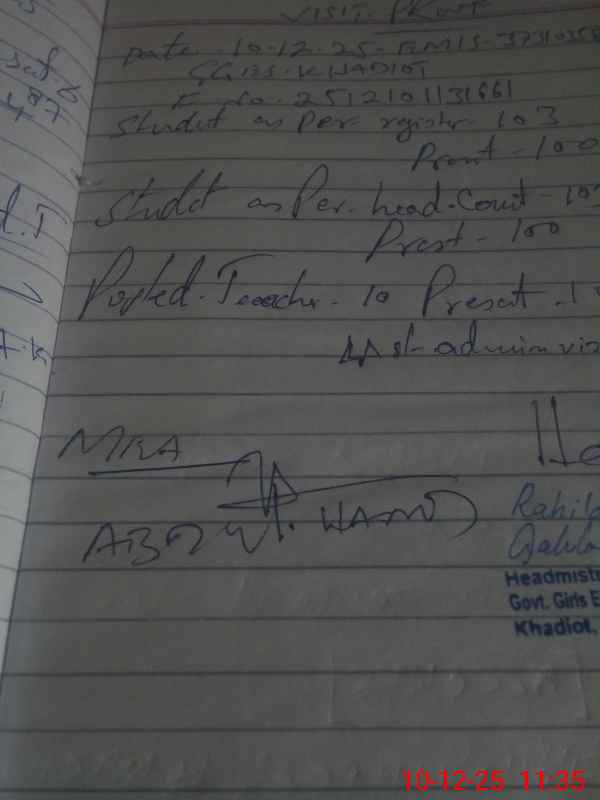 VISIT. PROOF
Date. 10-12-25- EMIS-3731035
GGES. KHADIOT
F. No. 2512101131661
Studet as Per. registr- 103
Presnt - 100
Studet as Per. head.Count - 10
Presnt - 100
Posted. Teacher - 10 Present. 1
Last admin vis
MEA
ABDUL. HAMID
Rahil
Headmist
Govt. Girls E
Khadiot.
10-12-25 11:35